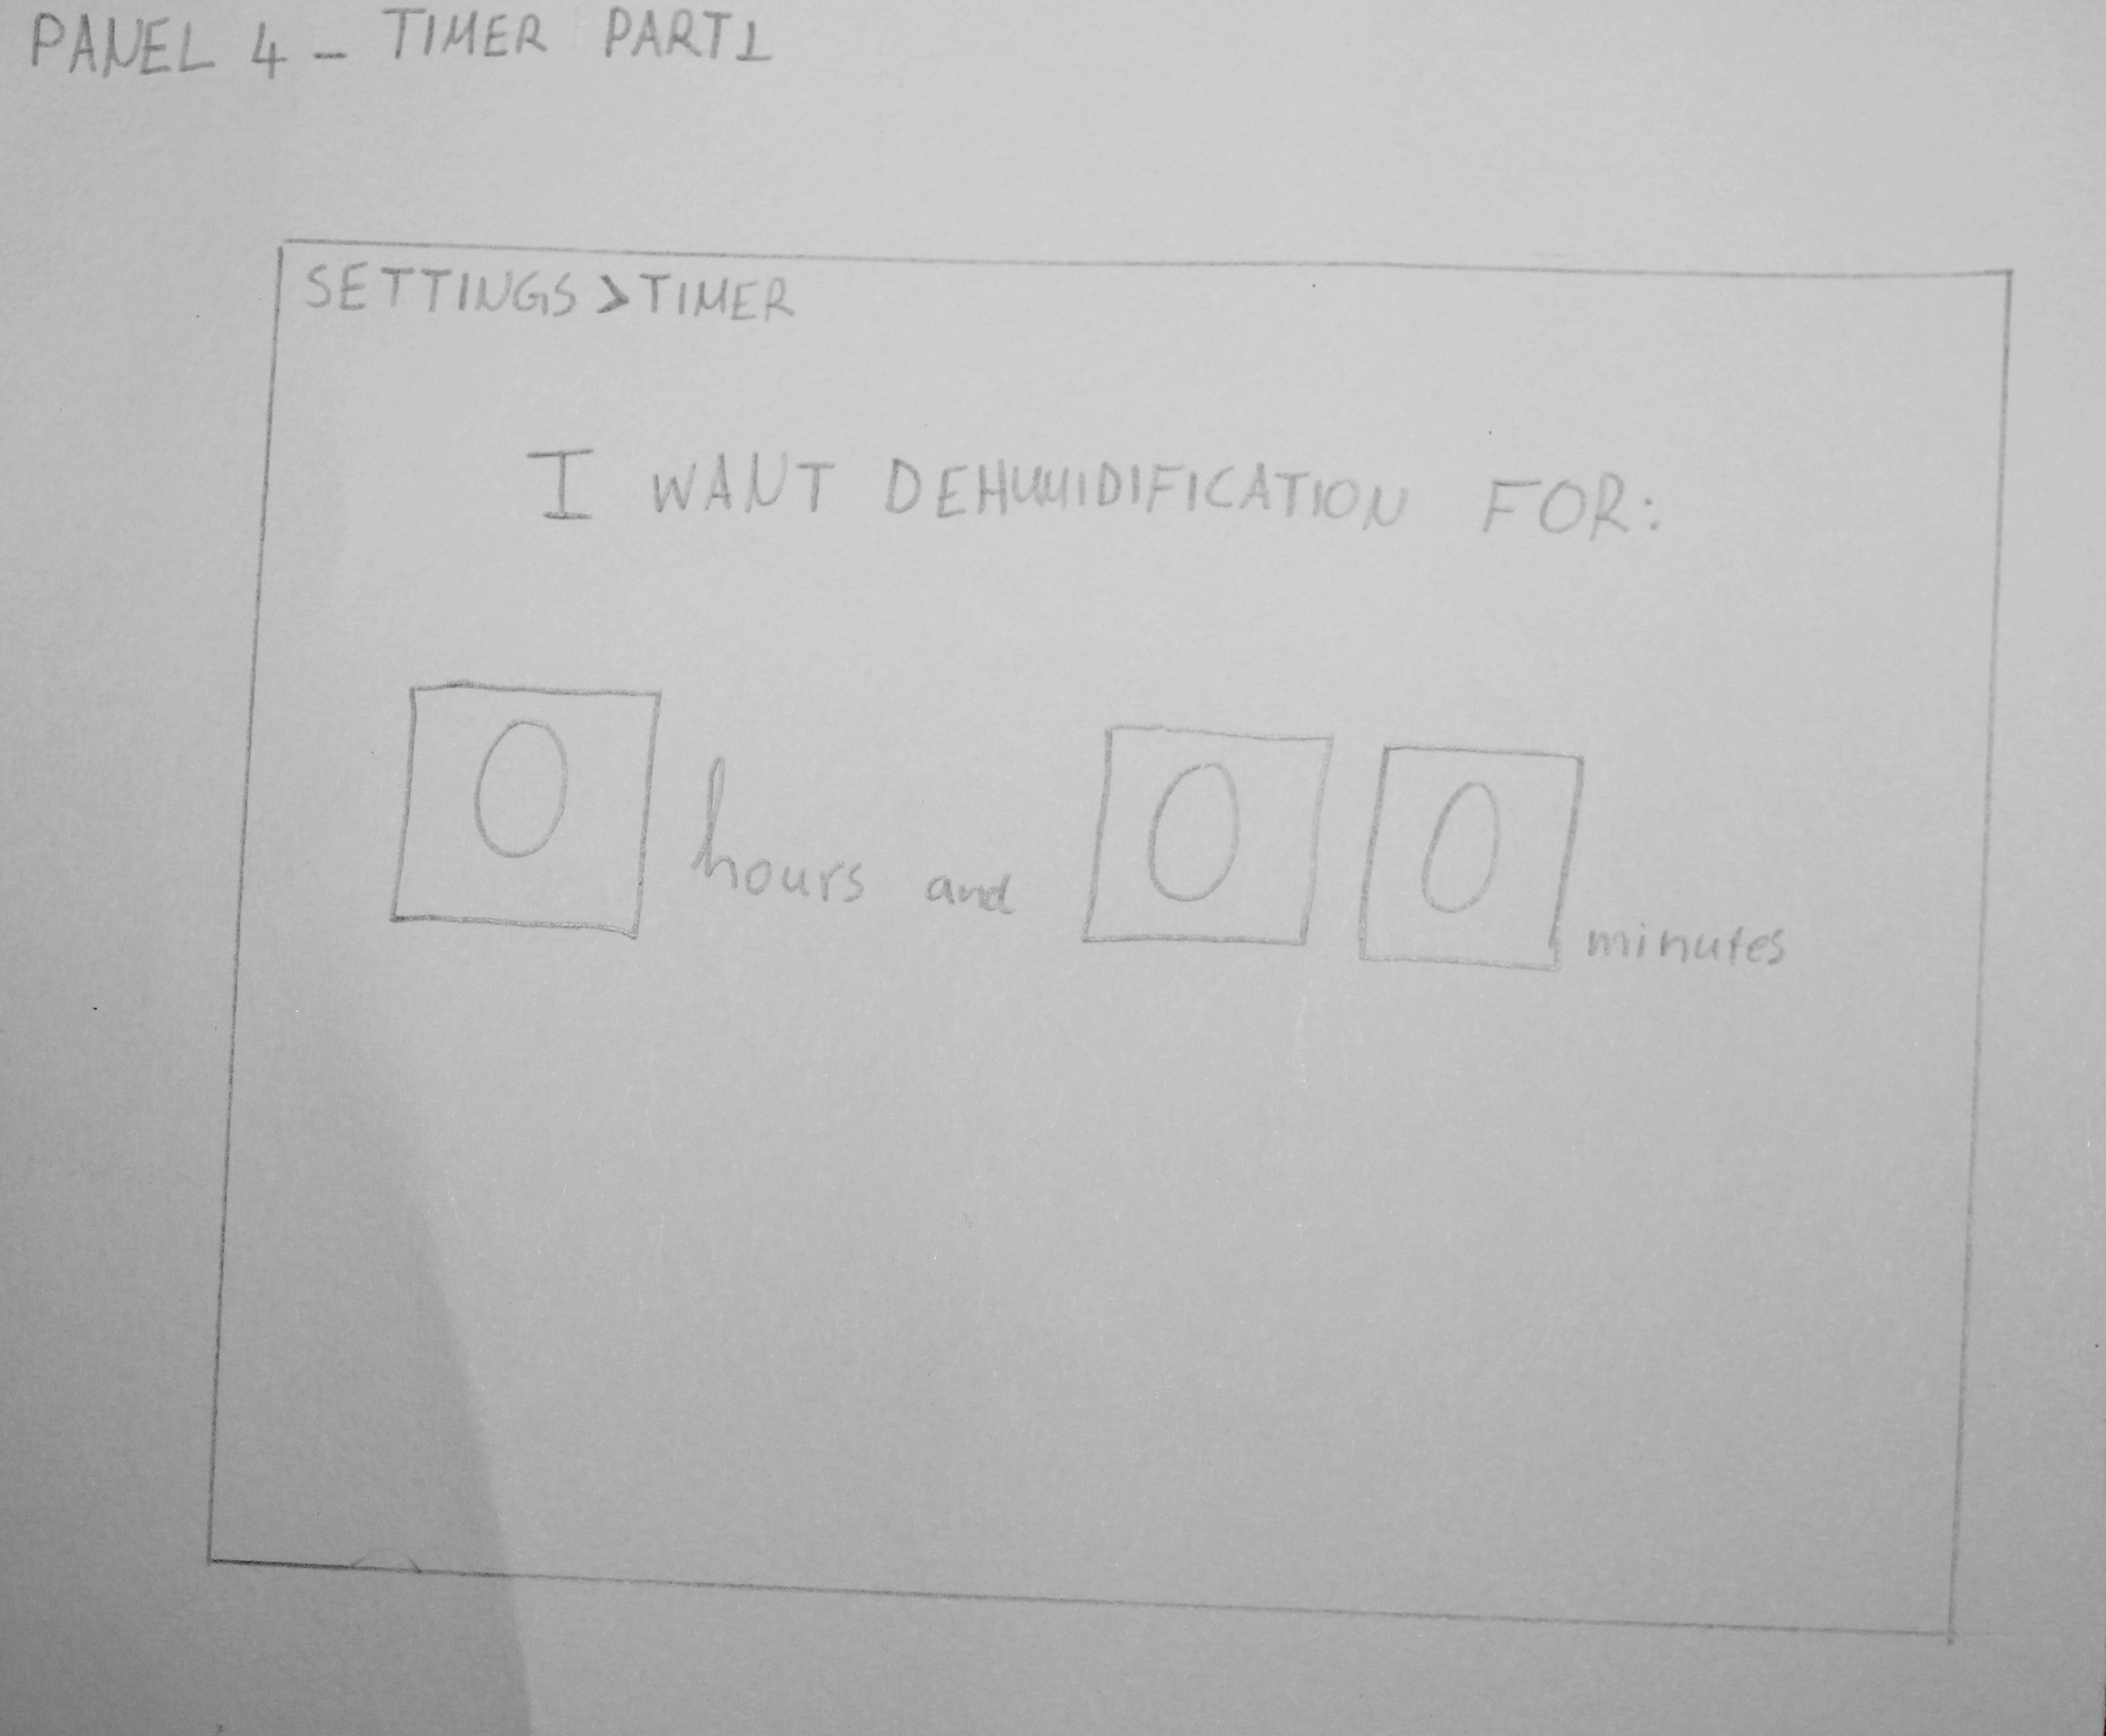 PANEL 4 - TIMER PART1
SETTINGS > TIMER
I WANT DEHUMIDIFICATION FOR:
0 hours and 0 0 minutes